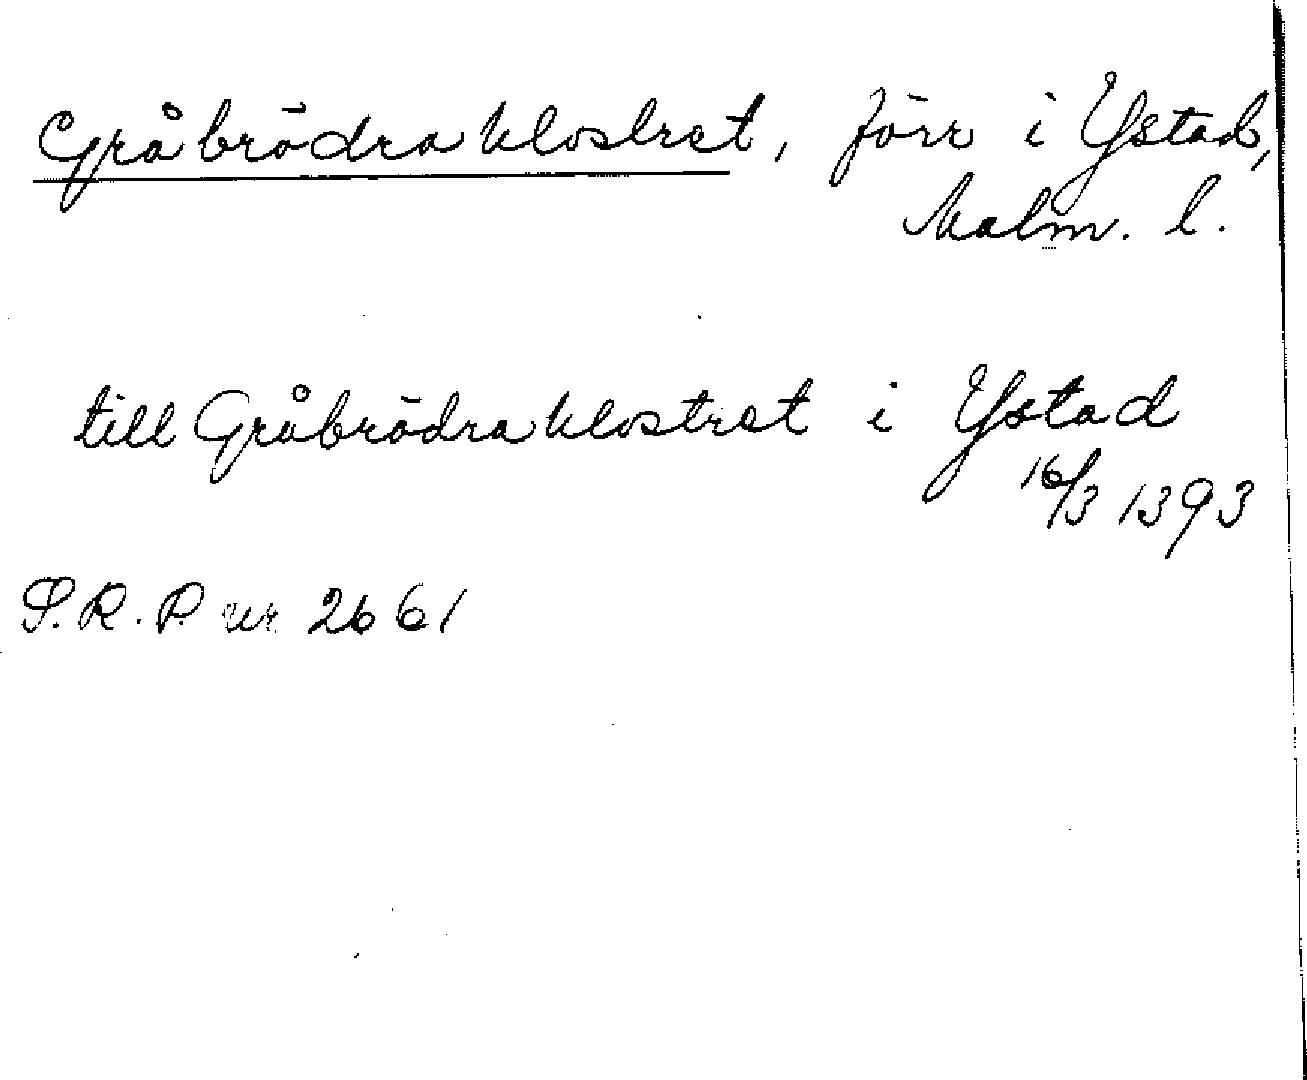 Gråbrödraklostret, förr i Ystad,
Malm. l.
till Gråbrödraklostret i Ystad
16/3 1393
S.R.P. nr 2661